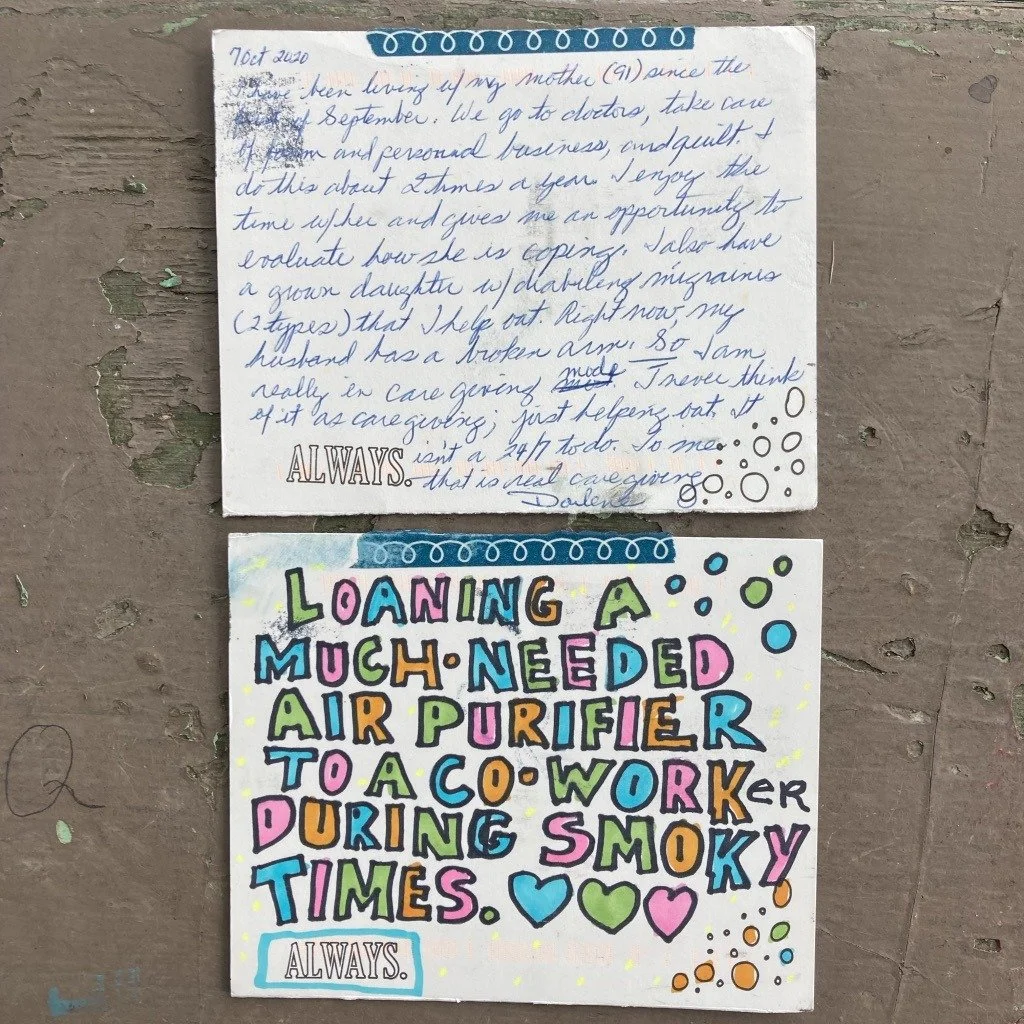 7 Oct 2020
I have been living w/ my mother (91) since the
first of September. We go to doctors, take care
of farm and personal business, and quilt. I
do this about 2 times a year. I enjoy the
time w/her and gives me an opportunity to
evaluate how she is coping. I also have
a grown daughter w/ diabiling migraines
(2 types) that I help out. Right now, my
husband has a broken arm. So I am
really in care giving mode. I never think
of it as care giving; just helping out. It
isn't a 24/7 to do. To me
ALWAYS. that is real care giving.
Darlene
LOANING A
MUCH-NEEDED
AIR PURIFIER
TO A CO-WORKER
DURING SMOKY
TIMES.
ALWAYS.
Q